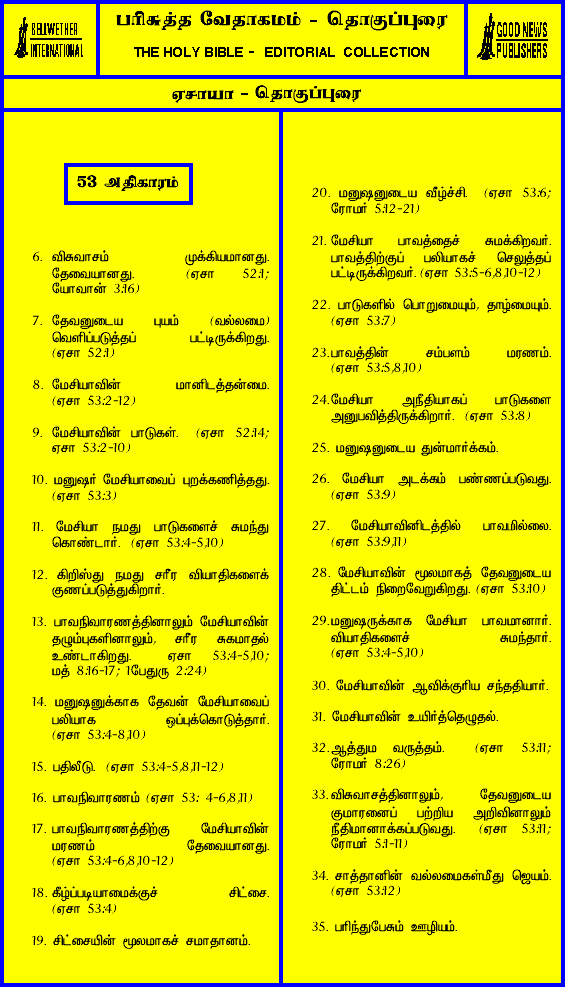 BELLWETHER
INTERNATIONAL
பரிசுத்த வேதாகமம் - தொகுப்புரை
THE HOLY BIBLE - EDITORIAL COLLECTION
GOOD NEWS
PUBLISHERS
ஏசாயா - தொகுப்புரை
53 அதிகாரம்
6. விசுவாசம் முக்கியமானது.
தேவையானது. (ஏசா 52:1;
யோவான் 3:16)
7. தேவனுடைய புயம் (வல்லமை)
வெளிப்படுத்தப் பட்டிருக்கிறது.
(ஏசா 52:1)
8. மேசியாவின் மானிடத்தன்மை.
(ஏசா 53:2-12)
9. மேசியாவின் பாடுகள். (ஏசா 52:14;
ஏசா 53:2-10)
10. மனுஷர் மேசியாவைப் புறக்கணித்தது.
(ஏசா 53:3)
11. மேசியா நமது பாடுகளைச் சுமந்து
கொண்டார். (ஏசா 53:4-5,10)
12. கிறிஸ்து நமது சரீர வியாதிகளைக்
குணப்படுத்துகிறார்.
13. பாவநிவாரணத்தினாலும் மேசியாவின்
தழும்புகளினாலும், சரீர சுகமாதல்
உண்டாகிறது. ஏசா 53:4-5,10;
மத் 8:16-17; 1பேதுரு 2:24)
14. மனுஷனுக்காக தேவன் மேசியாவைப்
பலியாக ஒப்புக்கொடுத்தார்.
(ஏசா 53:4-8,10)
15. பதிலீடு. (ஏசா 53:4-5,8,11-12)
16. பாவநிவாரணம் (ஏசா 53: 4-6,8,11)
17. பாவநிவாரணத்திற்கு மேசியாவின்
மரணம் தேவையானது.
(ஏசா 53:4-6,8,10-12)
18. கீழ்ப்படியாமைக்குச் சிட்சை.
(ஏசா 53:4)
19. சிட்சையின் மூலமாகச் சமாதானம்.
20. மனுஷனுடைய வீழ்ச்சி. (ஏசா 53:6;
ரோமர் 5:12-21)
21. மேசியா பாவத்தைச் சுமக்கிறவர்.
பாவத்திற்குப் பலியாகச் செலுத்தப்
பட்டிருக்கிறவர். (ஏசா 53:5-6,8,10-12)
22. பாடுகளில் பொறுமையும், தாழ்மையும்.
(ஏசா 53:7)
23.பாவத்தின் சம்பளம் மரணம்.
(ஏசா 53:5,8,10)
24.மேசியா அநீதியாகப் பாடுகளை
அனுபவித்திருக்கிறார். (ஏசா 53:8)
25. மனுஷனுடைய துன்மார்க்கம்.
26. மேசியா அடக்கம் பண்ணப்படுவது.
(ஏசா 53:9)
27. மேசியாவினிடத்தில் பாவமில்லை.
(ஏசா 53:9,11)
28. மேசியாவின் மூலமாகத் தேவனுடைய
திட்டம் நிறைவேறுகிறது. (ஏசா 53:10)
29.மனுஷருக்காக மேசியா பாவமானார்.
வியாதிகளைச் சுமந்தார்.
(ஏசா 53:4-5,10)
30. மேசியாவின் ஆவிக்குரிய சந்ததியார்.
31. மேசியாவின் உயிர்த்தெழுதல்.
32.ஆத்தும வருத்தம். (ஏசா 53:11;
ரோமர் 8:26)
33.விசுவாசத்தினாலும், தேவனுடைய
குமாரனைப் பற்றிய அறிவினாலும்
நீதிமானாக்கப்படுவது. (ஏசா 53:11;
ரோமர் 5:1-11)
34. சாத்தானின் வல்லமைகள்மீது ஜெயம்.
(ஏசா 53:12)
35. பரிந்துபேசும் ஊழியம்.